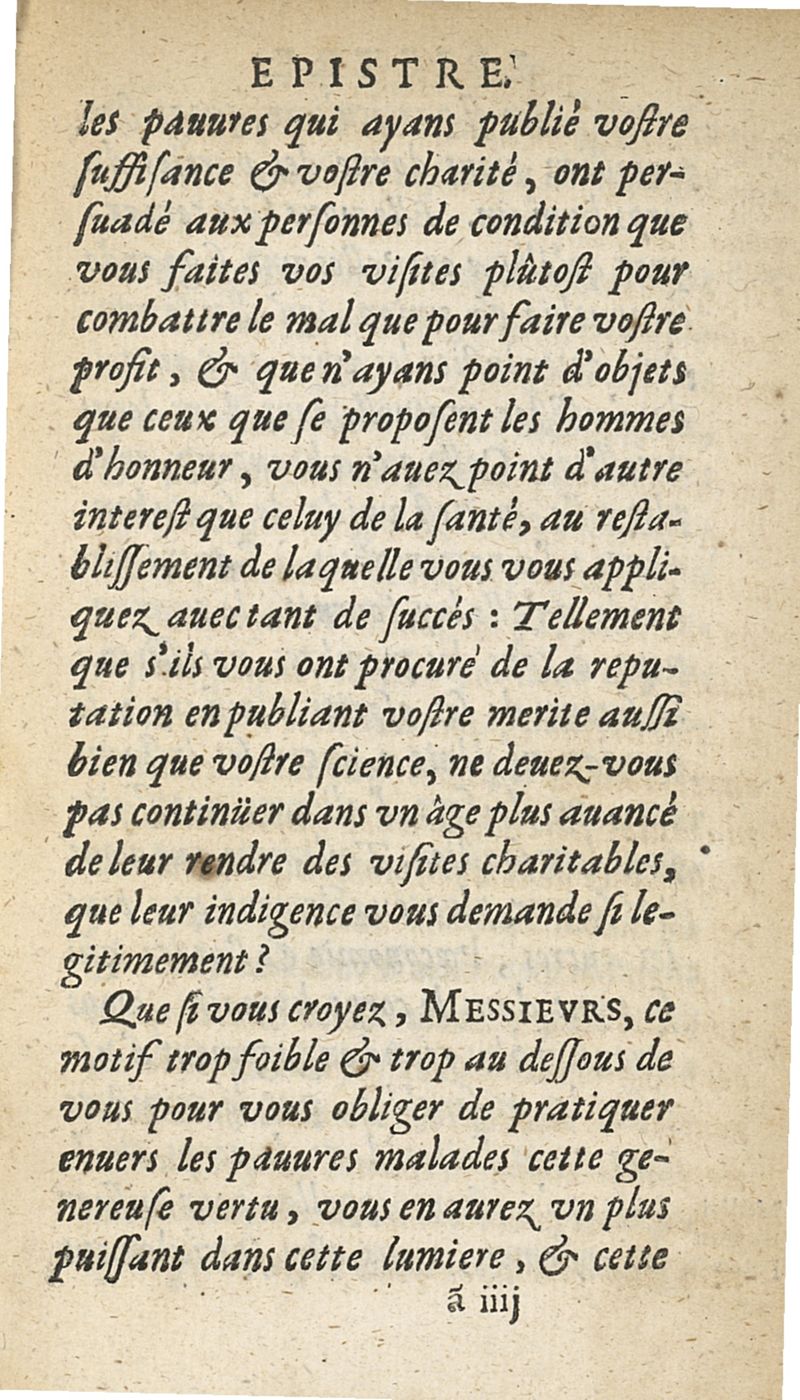 EPISTRE.
les pauures qui ayans publié voſtre
ſuffiſance & voſtre charité, ont per-
ſuadé aux perſonnes de condition que
vous faites vos viſites plûtoſt pour
combattre le mal que pour faire voſtre
profit, & que n'ayans point d'objets
que ceux que ſe propoſent les hommes
d'honneur, vous n'auez point d'autre
intereſt que celuy de la ſanté, au reſta-
bliſſement de laquelle vous vous appli-
quez auec tant de ſuccés : Tellement
que s'ils vous ont procuré de la repu-
tation en publiant voſtre merite auſſi
bien que voſtre ſcience, ne deuez-vous
pas continüer dans vn âge plus auancé
de leur rendre des viſites charitables,
que leur indigence vous demande ſi le-
gitimement ?
Que ſi vous croyez, MESSIEVRS, ce
motif trop foible & trop au deſſous de
vous pour vous obliger de pratiquer
enuers les pauures malades cette ge-
nereuſe vertu, vous en aurez vn plus
puiſſant dans cette lumiere, & cette
ã iiij